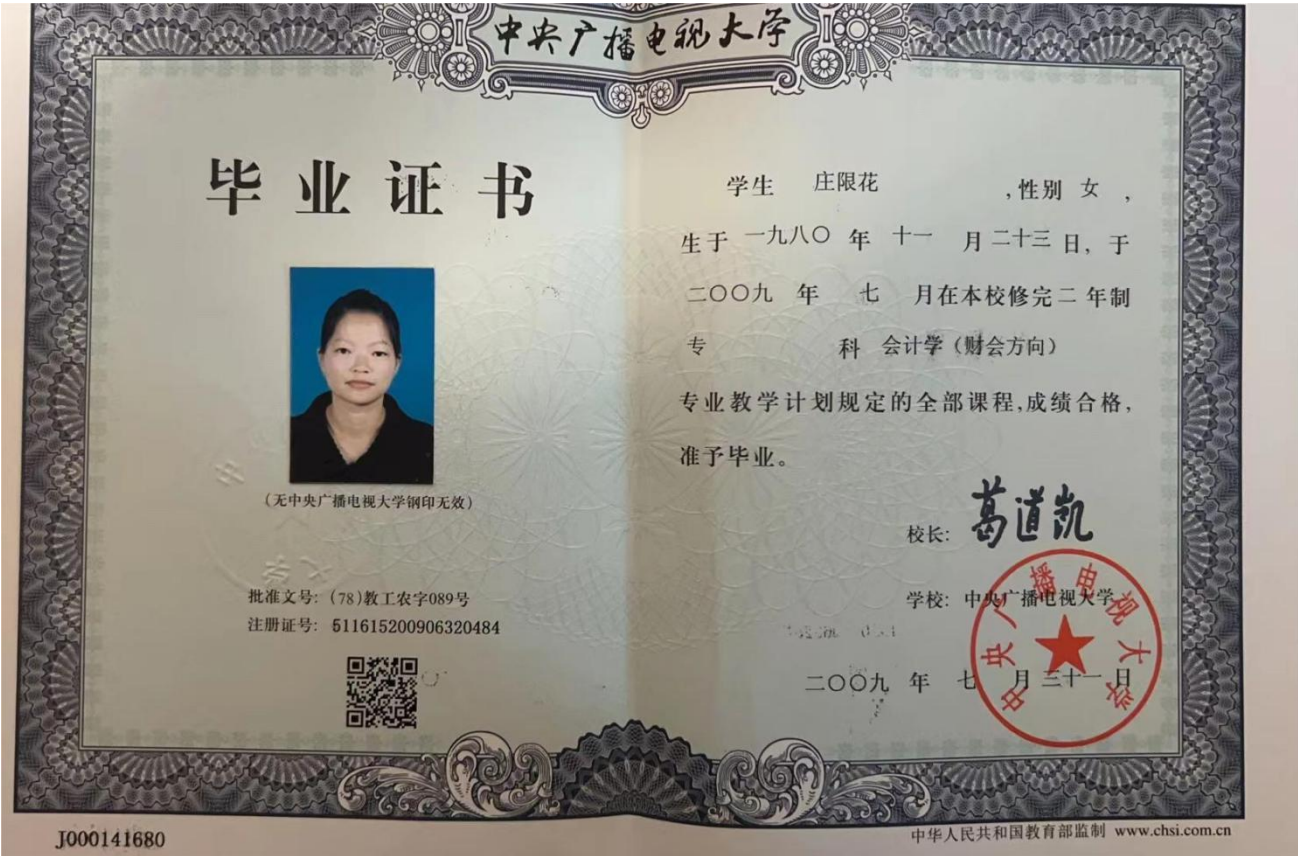 中央广播电视大学
毕业证书
(无中央广播电视大学钢印无效)
批准文号: (78)教工农字089号
注册证号: 511615200906320484
J000141680
学生 庄限花 ,性别 女 ,
生于 一九八〇 年 十一 月 二十三 日, 于
二〇〇九 年 七 月在本校修完 二 年制
专 科 会计学(财会方向)
专业教学计划规定的全部课程,成绩合格,
准予毕业。
校长: 葛道凯
学校: 中央广播电视大学
中央广播电视大学
二〇〇九 年 七 月 三十一 日
中华人民共和国教育部监制 www.chsi.com.cn